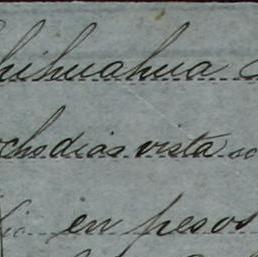 Chihuahua
ocho dias vista
en pesos